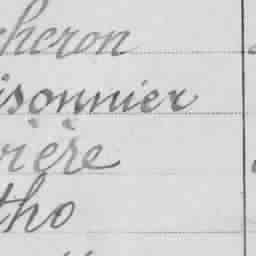 cheron
isonnier
rière
tho